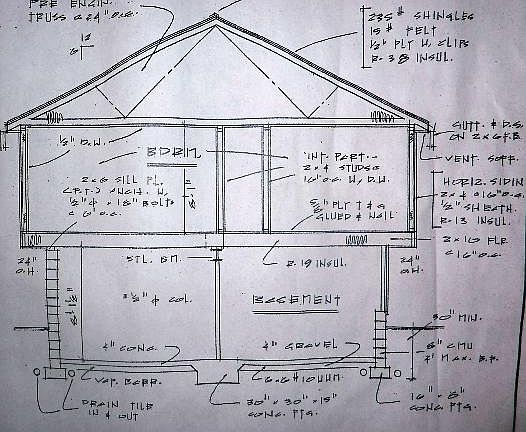 PRE ENGIN.
TRUSS @ 24" O.C.
12
6
235# SHINGLES
15# FELT
1/2" PLY W. CLIPS
R-38 INSUL.
GUTT. & D.S.
ON 2x6 F.B.
VENT SOFF.
1/2" D.W.
BDRM.
INT. PART.--
2x4 STUDS
16" O.C. W/ D.W.
2x6 SILL PL.
(P.T.) ANCH. W.
1/2" φ x 16" BOLTS
@ 6' O.C.
5/8" PLY T & G
GLUED & NAIL
HORIZ. SIDIN
2x4 @ 16" O.C.
1/2" SHEATH.
R-13 INSUL.
2x10 FLR
@ 16" O.C.
24"
O.H.
STL. BM.
R-19 INSUL.
24"
O.H.
3 1/2" φ COL.
BASEMENT
30" MIN.
4" CONC.
4" GRAVEL
8" CMU
VAP. BARR.
6x6 #10 WWM.
DRAIN TILE
IN & OUT
30" x 30" x 15"
CONC. FTG.
16" x 8"
CONC. FTG.